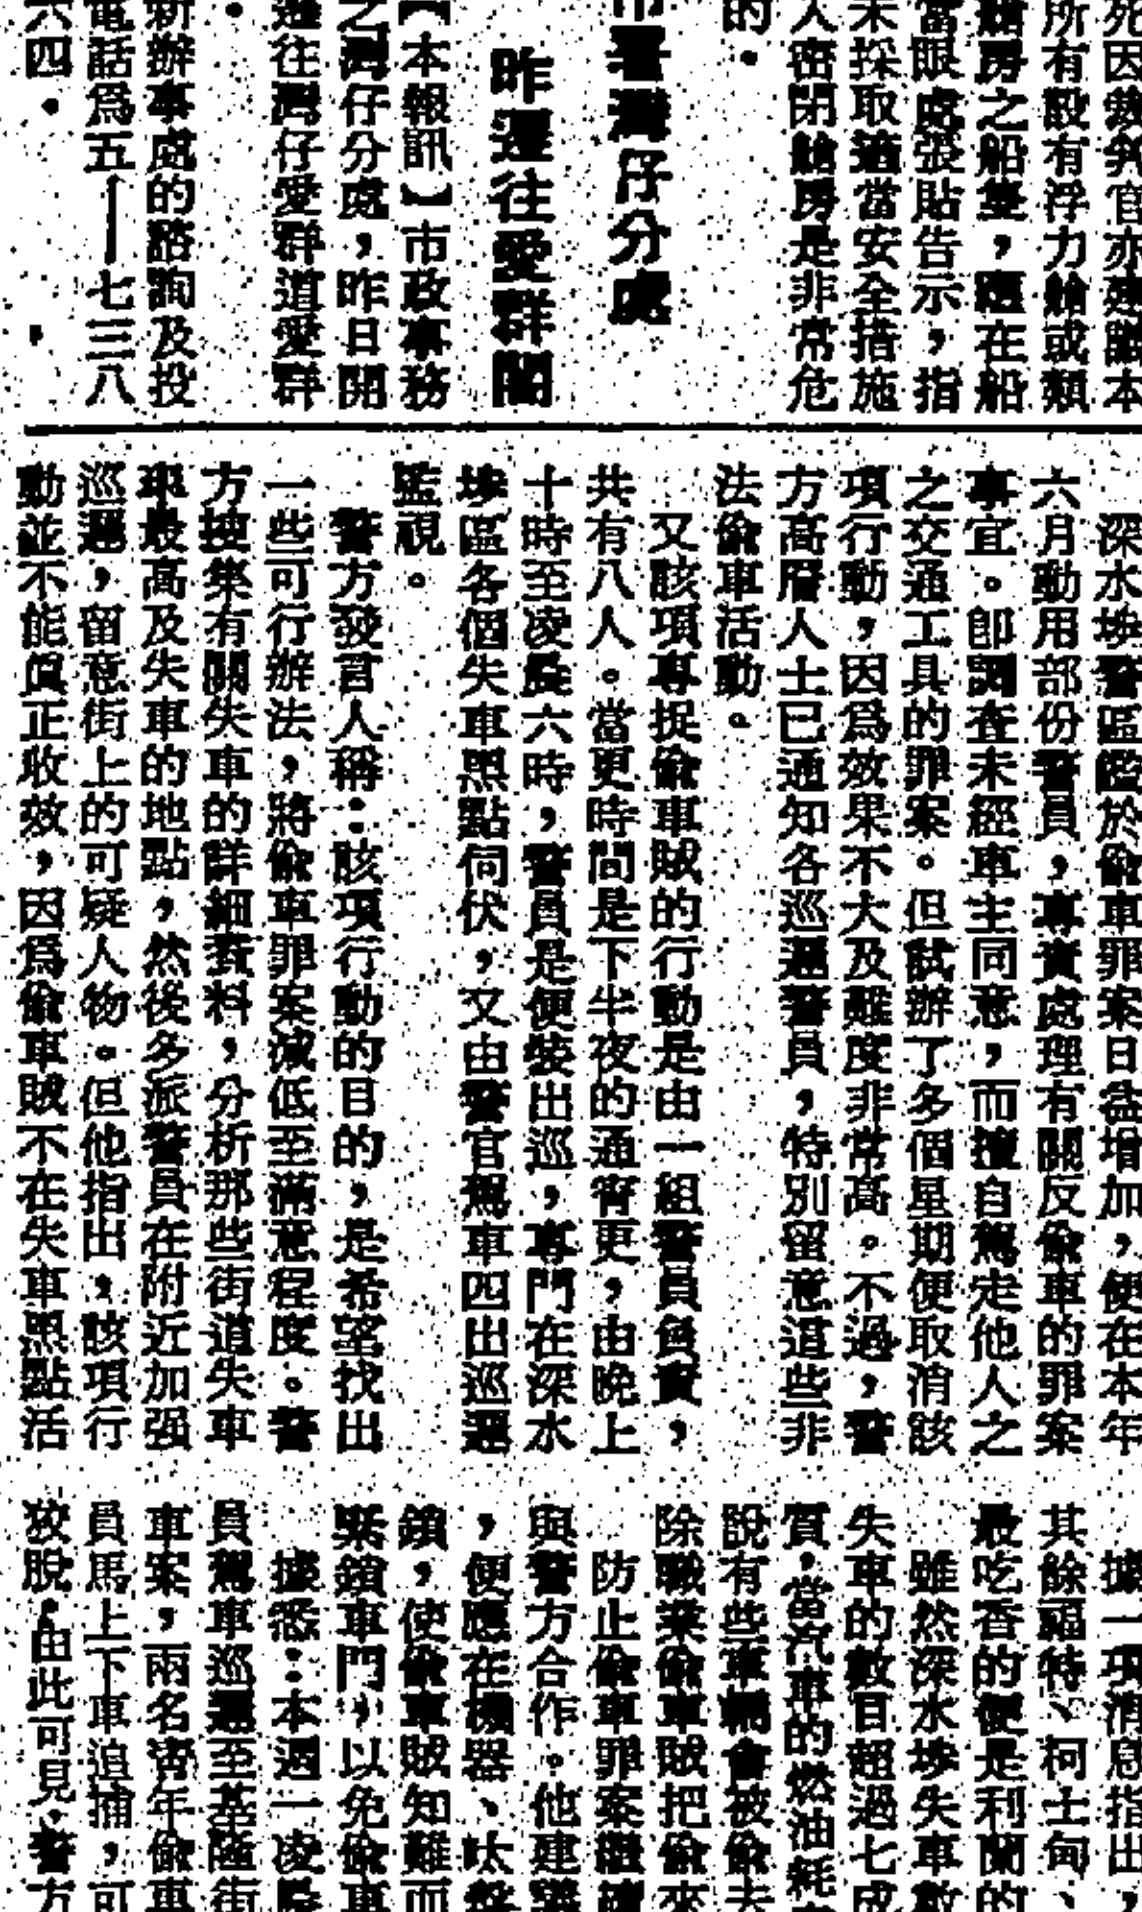 死因裁判官亦建議本
所有設有浮力艙或類
艙房之船隻，應在船
當眼處張貼告示，指
未採取適當安全措施
人密閉艙房是非常危
的．
市署灣仔分處
昨遷往愛群閣
【本報訊】市政事務
之灣仔分處，昨日開
遷往灣仔愛群道愛群
．
新辦事處的諮詢及投
電話爲五──七三八
六四．
深水埗警區鑑於偷車罪案日益增加，便在本年
六月動用部份警員，專責處理有關反偷車的罪案
事宜。卽調查未經車主同意，而擅自駕走他人之
之交通工具的罪案。但試辦了多個星期便取消該
項行動，因爲效果不大及難度非常高。不過，警
方高層人士已通知各巡邏警員，特別留意這些非
法偷車活動。
又該項專捉偷車賊的行動是由一組警員負責，
共有八人。當更時間是下半夜的通宵更，由晚上
十時至凌晨六時，警員是便裝出巡，專門在深水
埗區各個失車黑點伺伏，又由警官駕車四出巡邏
監視。
警方發言人稱：該項行動的目的，是希望找出
一些可行辦法，將偷車罪案減低至滿意程度。警
方搜集有關失車的詳細資料，分析那些街道失車
車最高及失車的地點，然後多派警員在附近加强
巡邏，留意街上的可疑人物。但他指出，該項行
動並不能眞正收效，因爲偷車賊不在失車黑點活
據一項消息指出，
其餘福特、柯士甸、
最吃香的便是利蘭的
雖然深水埗失車數
失車的數目超過七成
質，當汽車的燃油耗
說有些車輛會被偷去
除職業偷車賊把偷來
防止偷車罪案繼續
與警方合作。他建議
，便應在機器、呔盤
鎖，使偷車賊知難而
緊鎖車門，以免偷車
據悉：本週一凌晨
員駕車巡邏至基隆街
車案，兩名靑年偷車
員馬上下車追捕，可
狡脫．由此可見，警方